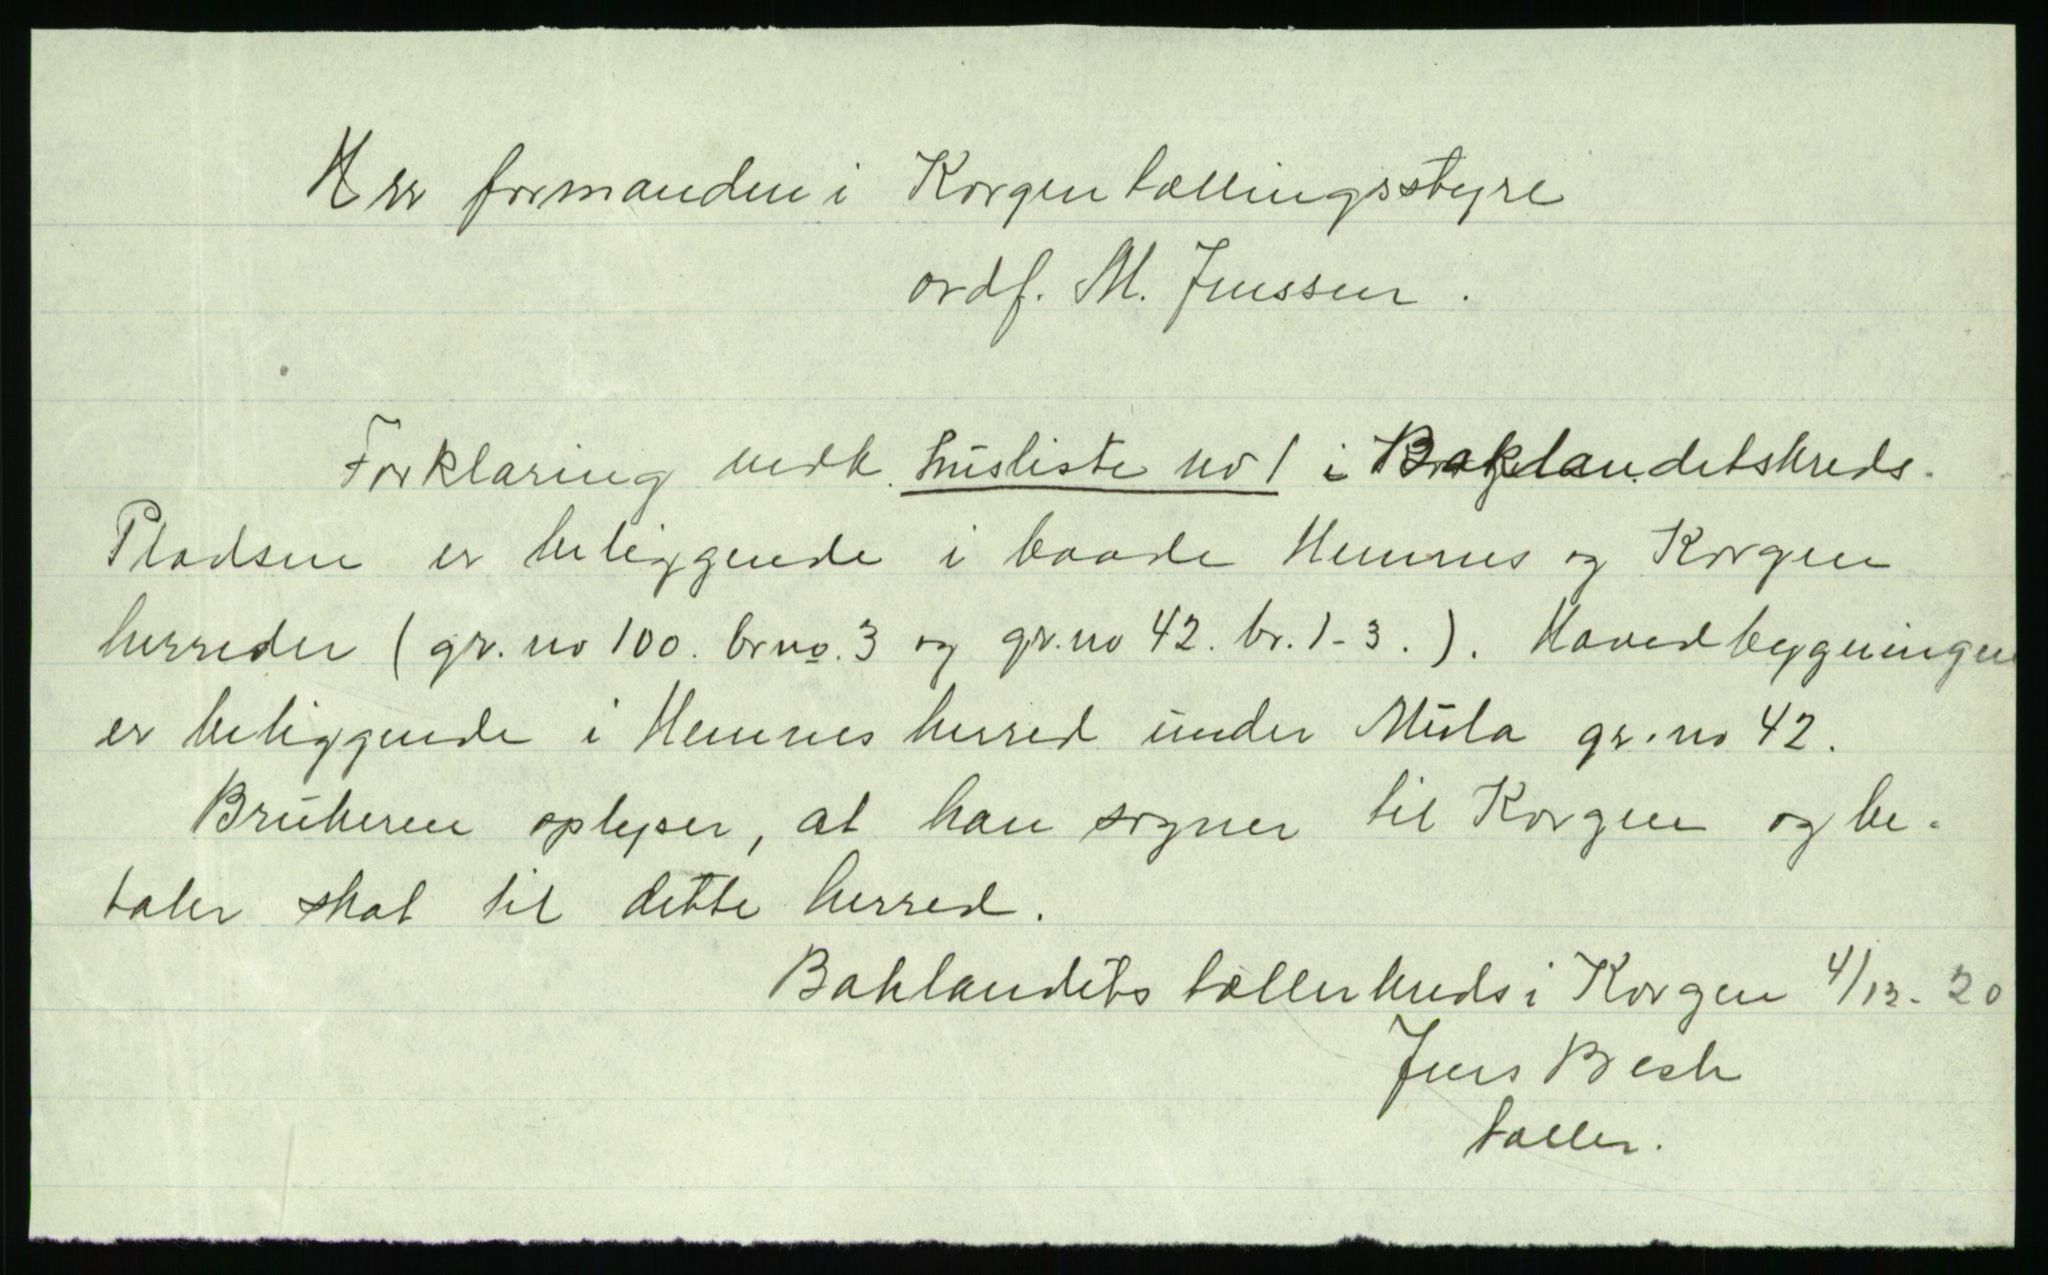 Herr formanden i Korgen tællingsstyre
ordf. M. Jenssen.
Forklaring vedk. husliste no 1 i Baklandets kreds.
Pladsen er beliggende i baade Hemnes og Korgen
herreder (gr. no 100. br no. 3 og gr. no 42. br. 1-3.). Hovedbygningen
er beliggende i Hemnes herred under Mula gr. no 42.
Brukeren oplyser, at han sogner til Korgen og be-
taler skat til dette herred.
Baklandets tællerkreds i Korgen 4/12-20
Jens Bech
tæller.